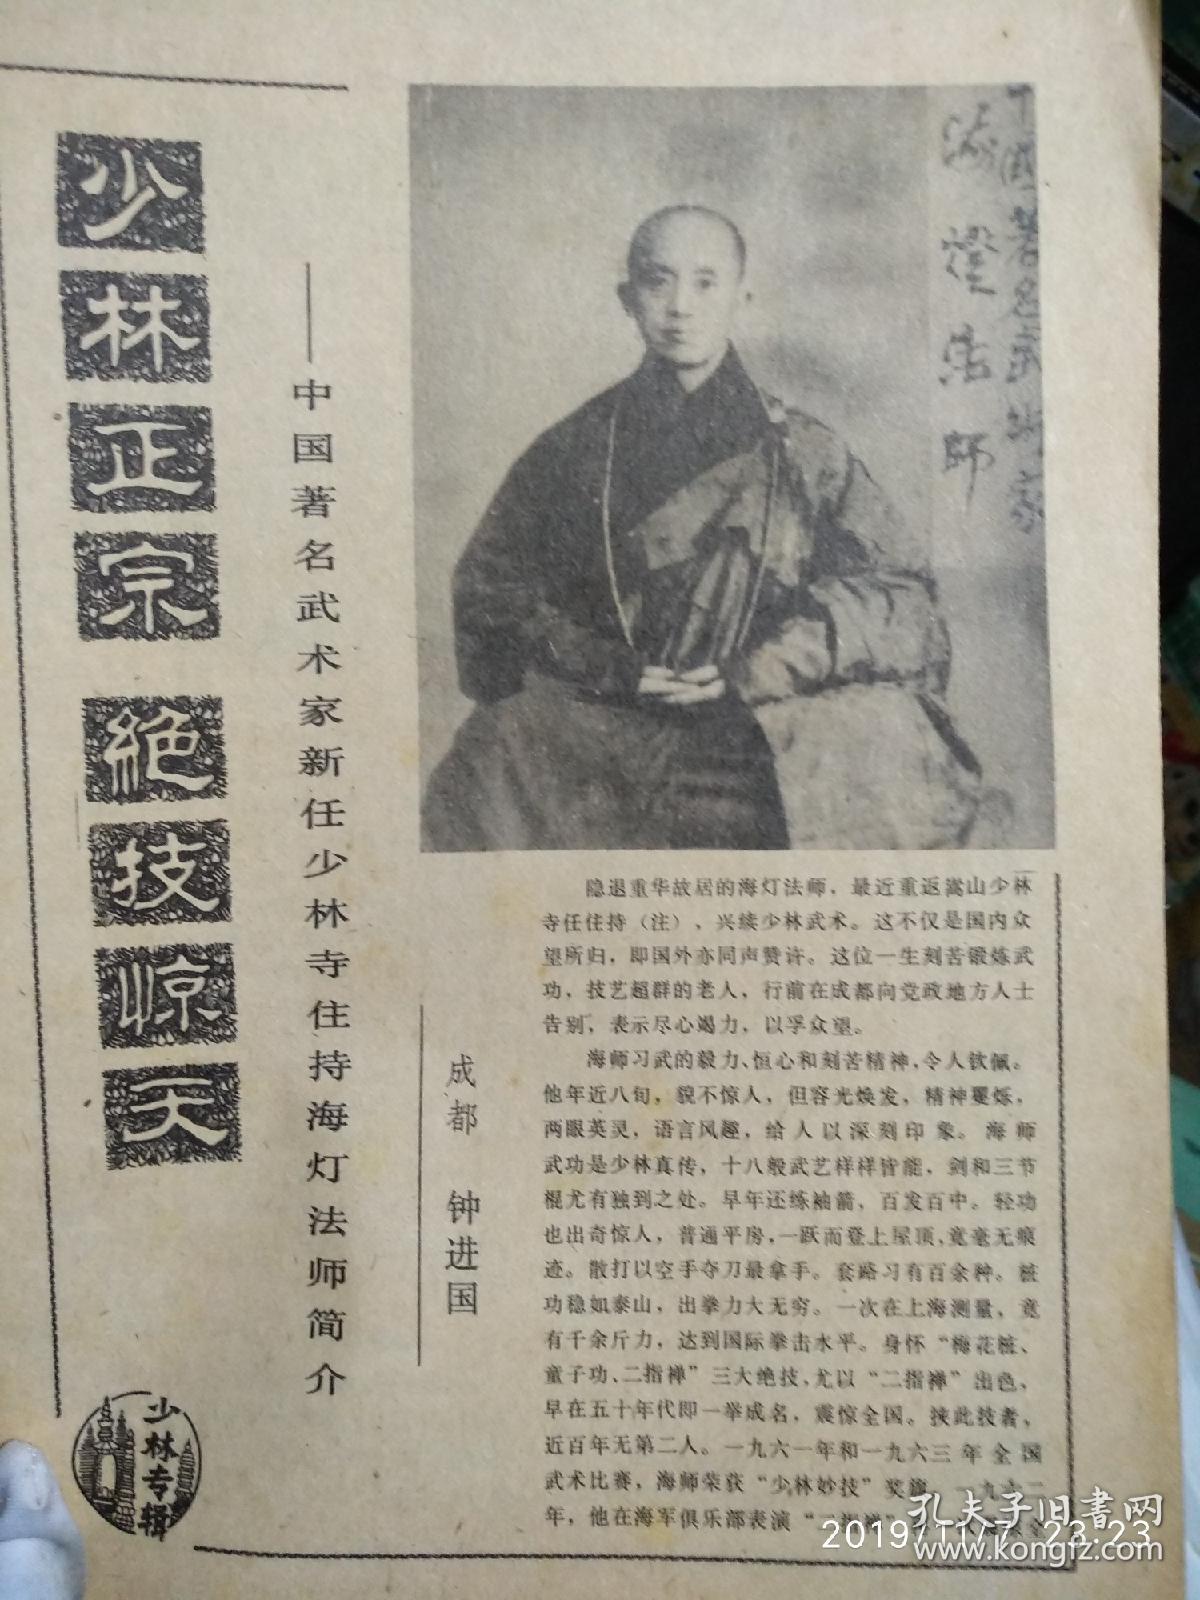 少林正宗 絕技惊天
——中国著名武术家新任少林寺住持海灯法师简介
成都 钟进国
中國著名武術家
海燈法師
隐退重华故居的海灯法师，最近重返嵩山少林
寺任住持（注）、兴续少林武术。这不仅是国内众
望所归，即国外亦同声赞许。这位一生刻苦锻炼武
功，技艺超群的老人，行前在成都向党政地方人士
告别，表示尽心竭力，以孚众望。
海师习武的毅力、恒心和刻苦精神，令人钦佩。
他年近八旬，貌不惊人，但容光焕发，精神矍烁，
两眼英灵，语言风趣，给人以深刻印象。海师
武功是少林真传，十八般武艺样样皆能，剑和三节
棍尤有独到之处。早年还练袖箭，百发百中。轻功
也出奇惊人，普通平房，一跃而登上屋顶，竟毫无痕
迹。散打以空手夺刀最拿手。套路习有百余种。桩
功稳如泰山，出拳力大无穷。一次在上海测量，竟
有千余斤力，达到国际拳击水平。身怀“梅花桩、
童子功、二指禅”三大绝技，尤以“二指禅”出色，
早在五十年代即一举成名，震惊全国。挟此技者，
近百年无第二人。一九六一年和一九六三年全国
武术比赛，海师荣获“少林妙技”奖旗。一九六二
年，他在海军俱乐部表演“二指禅”
少林专辑
孔夫子旧书网
www.kongfz.com
2019/11/17 23:23